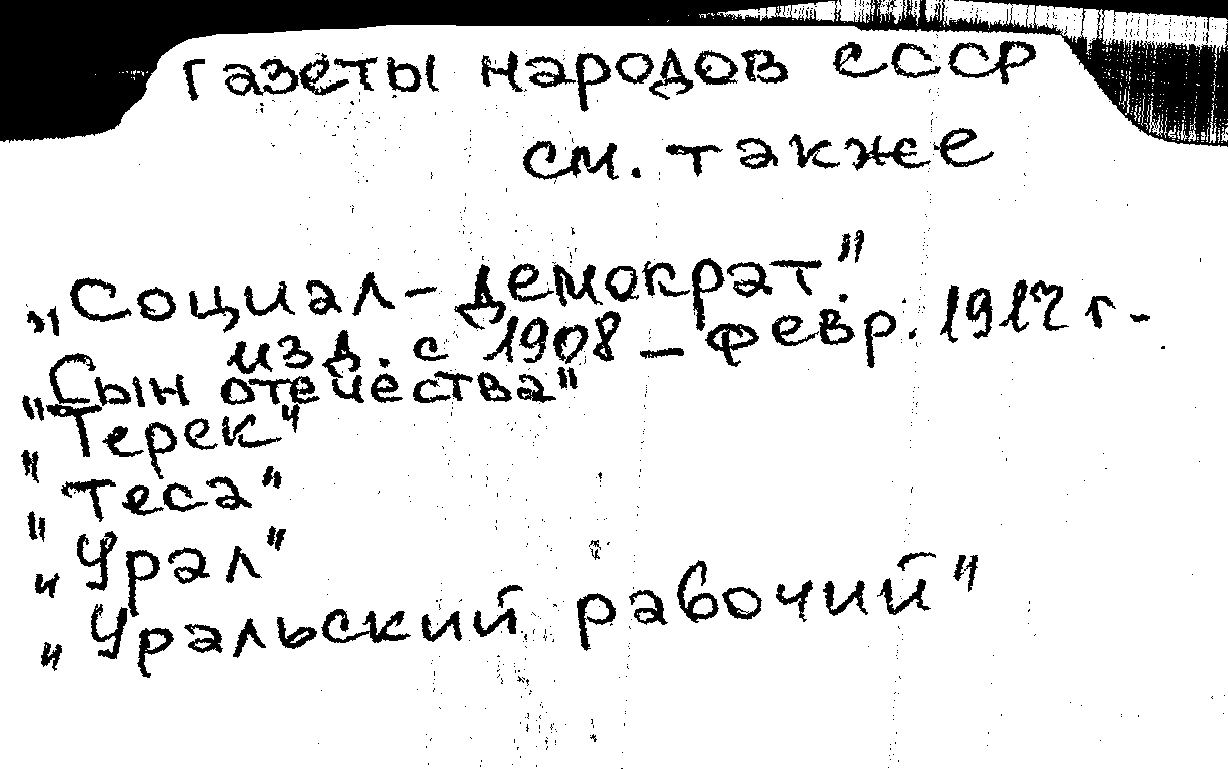 Газеты народов СССР
см. также
„Социал-демократ."
изд. с 1908 – февр. 1917 г.
"Сын отечества"
"Терек"
"Теса"
„Урал"
„Уральский рабочий"